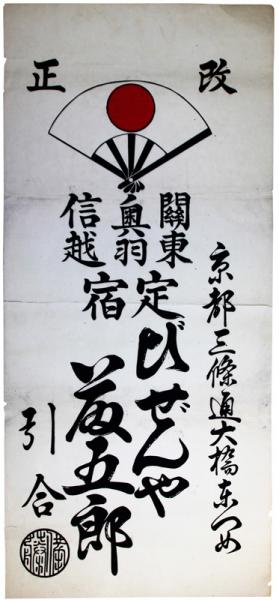 改正
京都三條通大橋東つめ
關東
奥羽
信越
定宿
びぜんや
藤五郎
引合